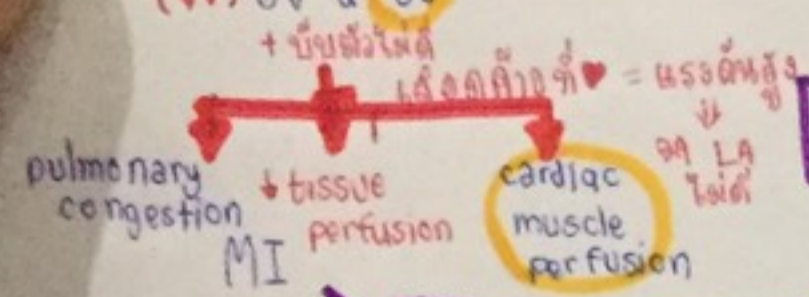 + บีบตัวไม่ดี
เลือดค้างที่♥ = แรงดันสูง
↓
จาก LA
ไม่ดี
pulmonary
congestion
↓ tissue
perfusion
cardiac
muscle
perfusion
MI